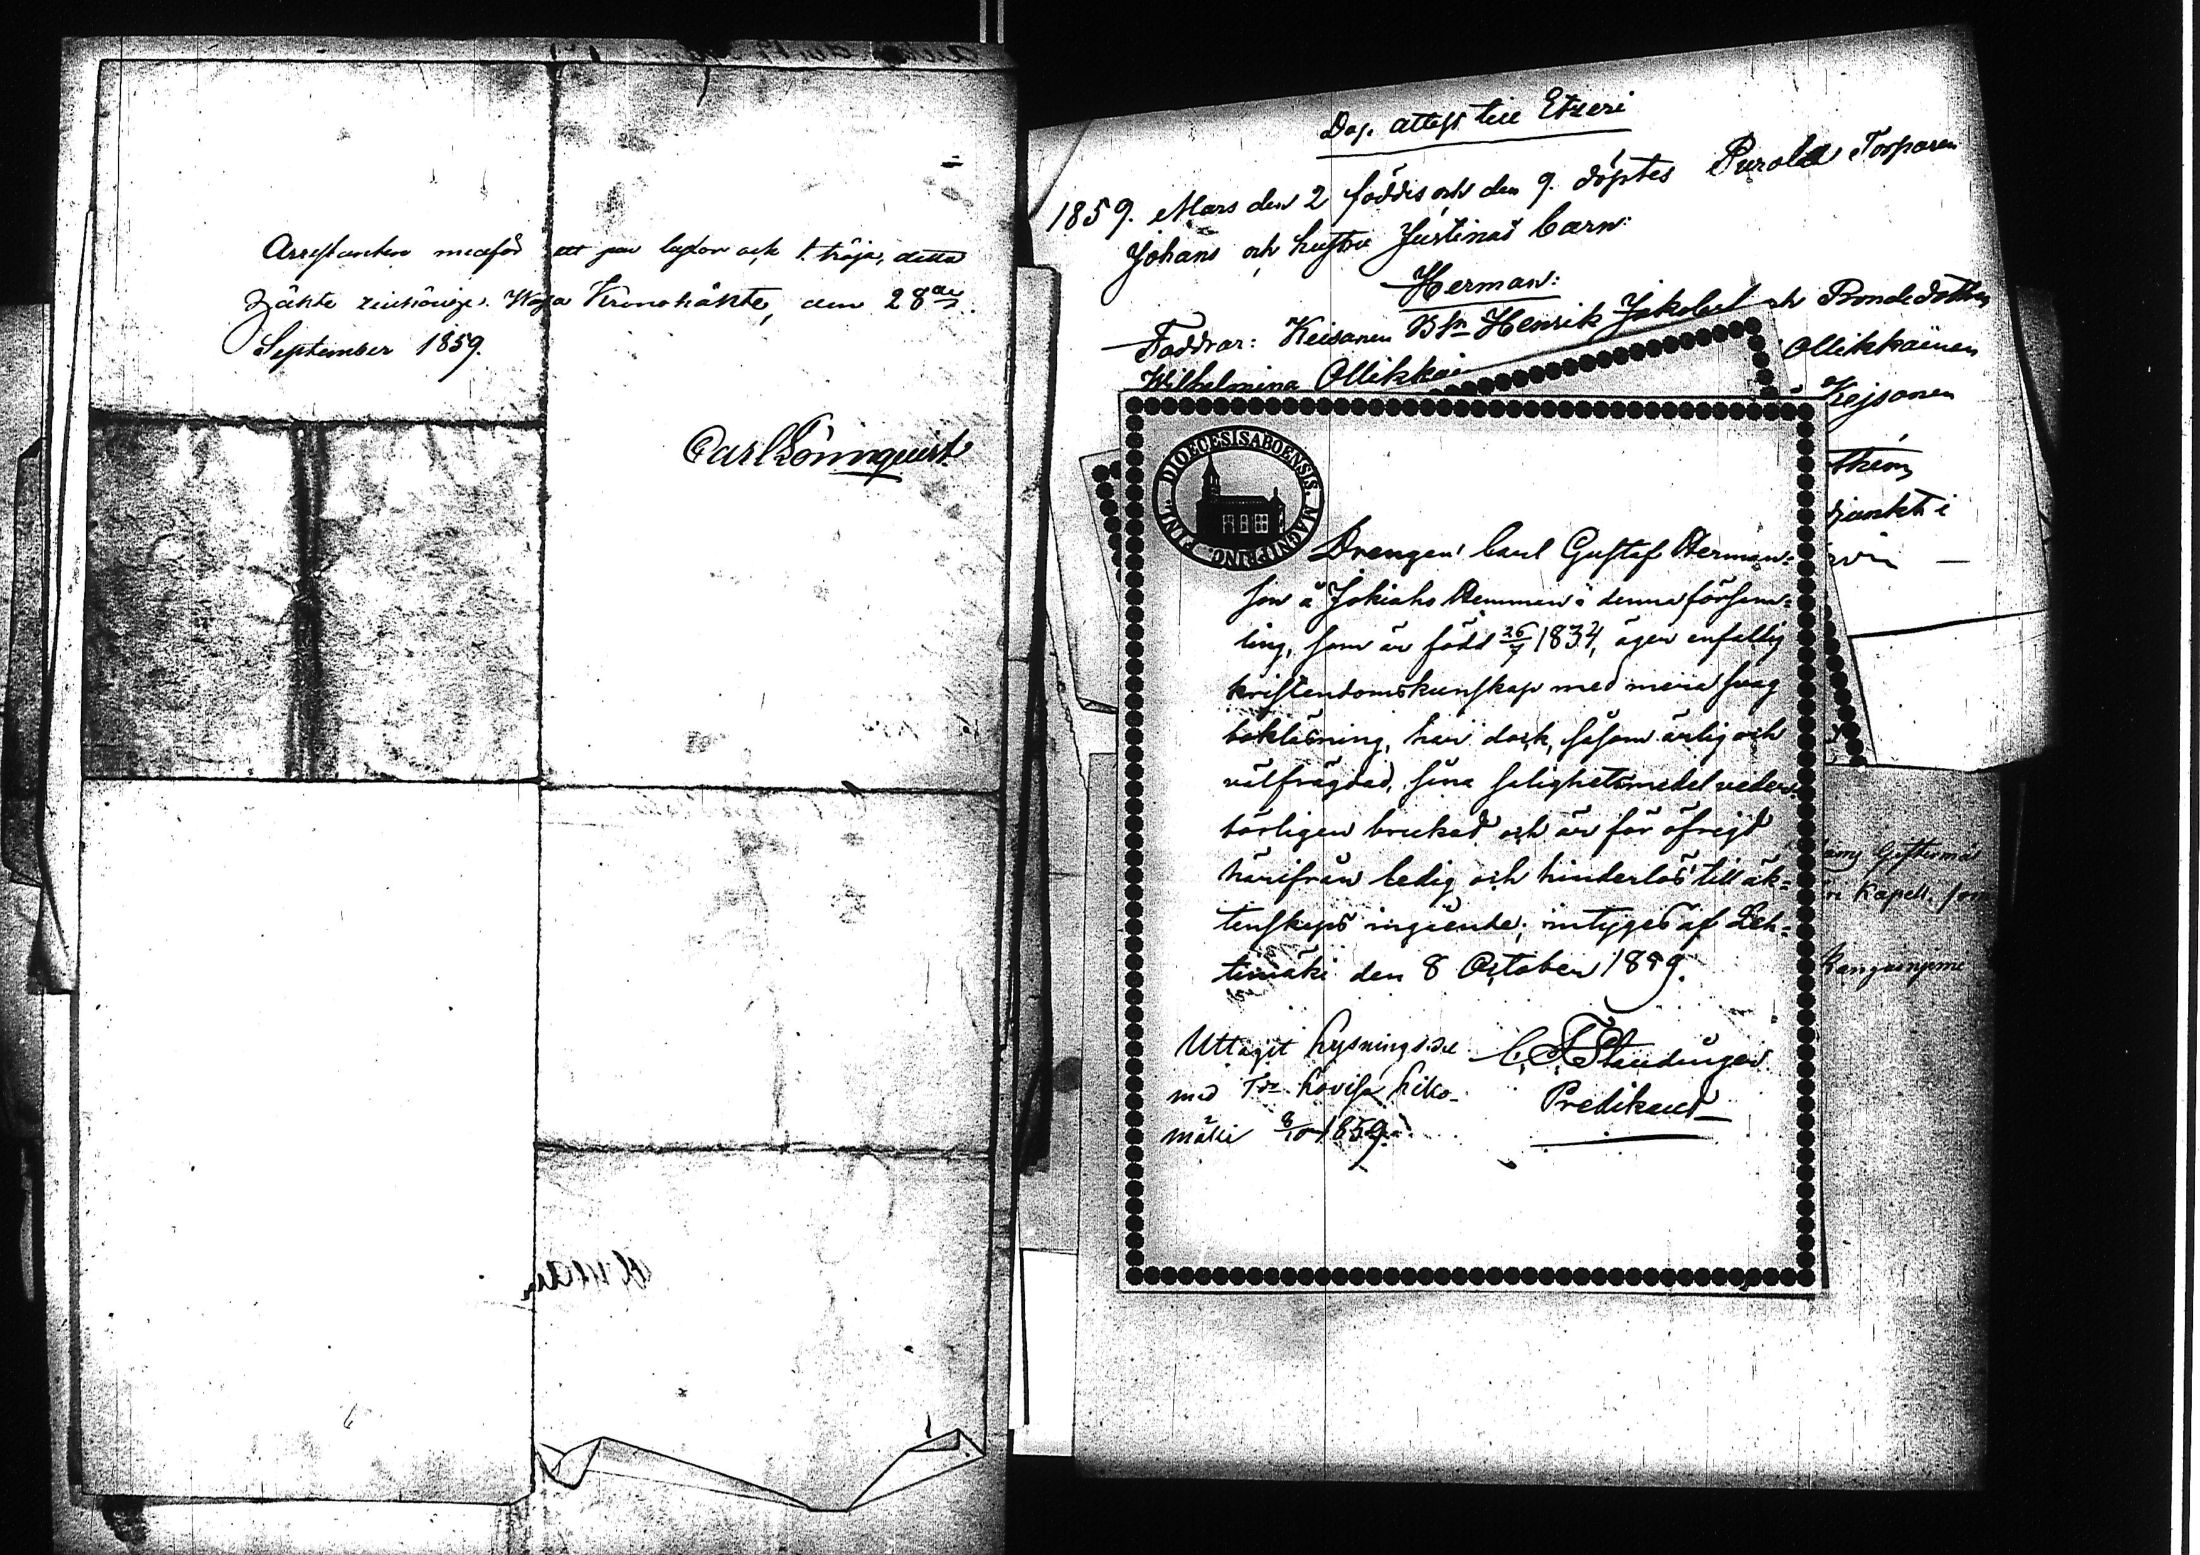 Arrestanten medför ett par byxor och 1. tröja, detta
Häkte tillhörige. Wasa Kronohäkte, den 28de
September 1859.
Carl Lönnquist
Dop. attest till Etseri
1859. Mars den 2 föddes och den 9. döptes Purola Torparen
Johans och hustru Justinas barn:
Herman:
Faddrar: Keisanen Henrik Jakobsl och Bondedottren
Wilhelmina Ollikkai
Ollikkainen
Kejsanen
DIOECESIS ABOENSIS MAGNI PRINC. FINL.
Drengen Carl Gustaf Herman-
son å Jokiaho Hemman i denna försam-
ling, som är född 26/7 1834, äger enfallig
kristendomskunskap med mera svag
bokläsning, har dock, såsom ärlig och
välfrägdad, sina salighetsmedel veder-
börligen brukat och är för öfrigt
härifrån ledig och hinderlös till äk-
tenskaps ingående; intygas af Leh-
timäki den 8 October 1859.
C. F. Staudinger
Predikant
Uttaget lysningssdl
med Lovisa Liko-
mäki 8/10 1859.